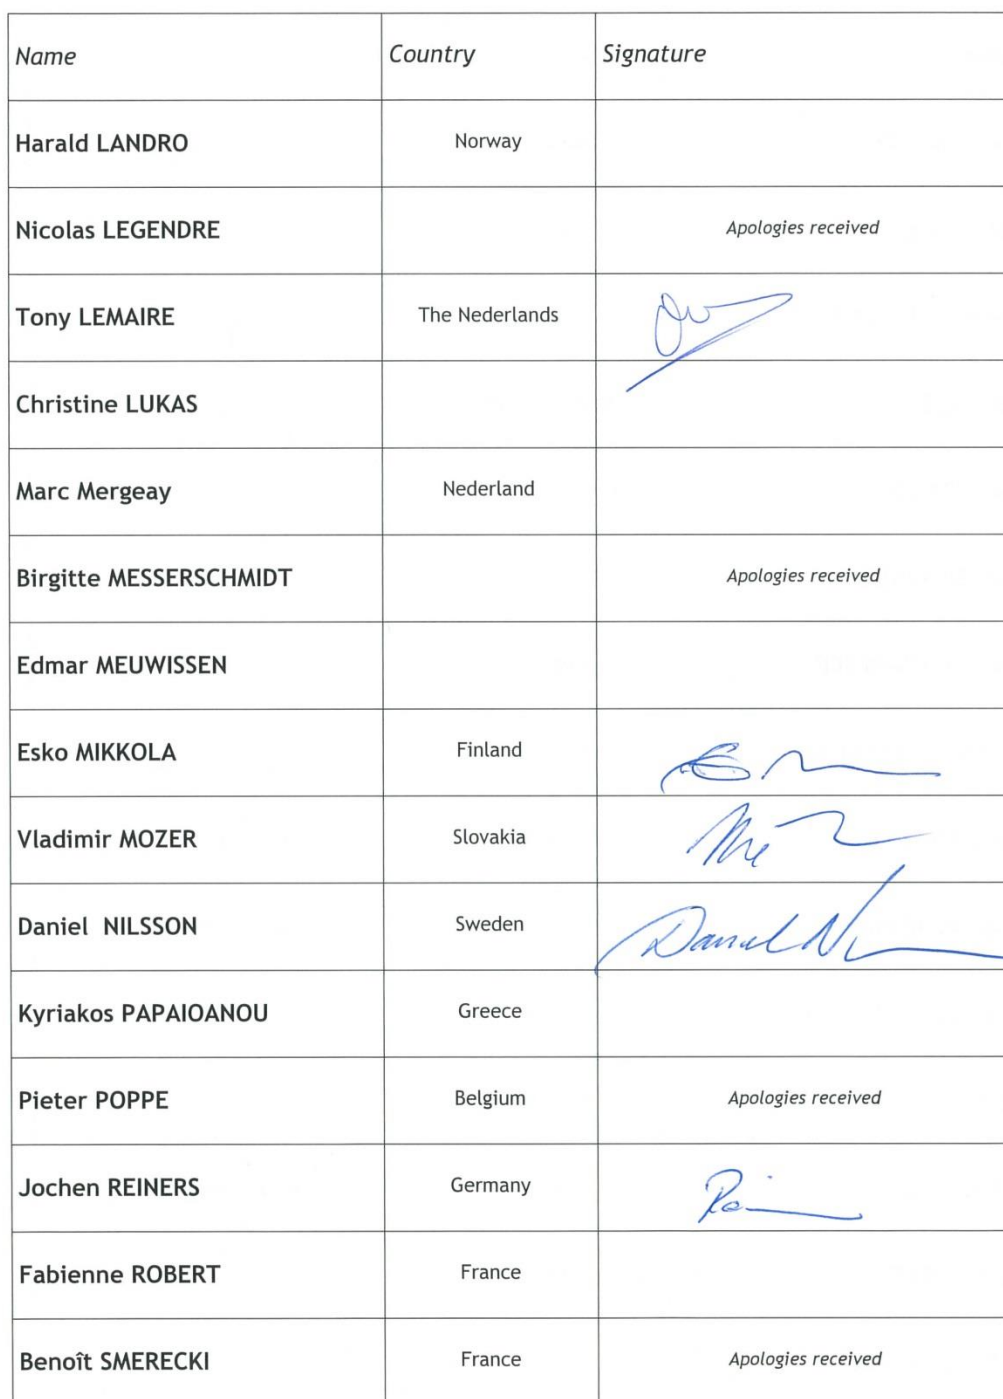 Name Country Signature
Harald LANDRO Norway
Nicolas LEGENDRE Apologies received
Tony LEMAIRE The Nederlands
Christine LUKAS
Marc Mergeay Nederland
Birgitte MESSERSCHMIDT Apologies received
Edmar MEUWISSEN
Esko MIKKOLA Finland
Vladimir MOZER Slovakia
Daniel NILSSON Sweden Daniel N
Kyriakos PAPAIOANOU Greece
Pieter POPPE Belgium Apologies received
Jochen REINERS Germany
Fabienne ROBERT France
Benoît SMERECKI France Apologies received